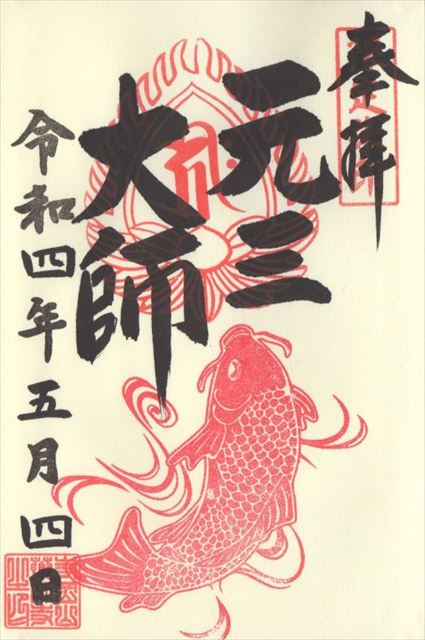 奉拝
元三
大師
令和四年五月四日